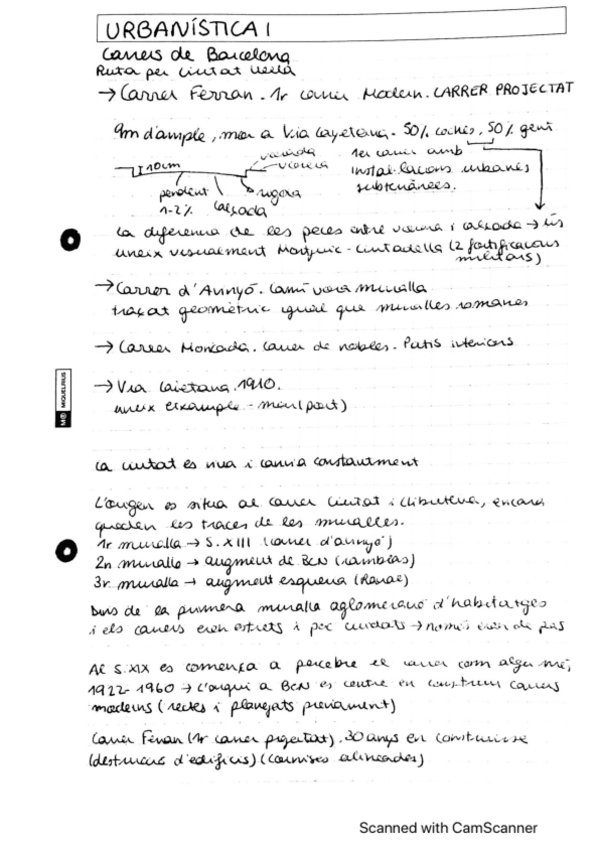 URBANÍSTICA I
Carrers de Barcelona
Ruta per ciutat vella
→ Carrer Ferran. 1r carrer Modern. CARRER PROJECTAT
9m d'ample, mor a Via Layetana. 50% cotxes, 50% gent
10cm
vorada
vorera
pendent
1-2%
calçada
rigola
1er carrer amb
instal·lacions urbanes
subterrànees.
La diferencia de les peces entre vorera i calçada → ús
uneix visualment Montjuic - ciutadella (2 fortificacions
militars)
→ Carrer d'Avinyó. Camí vora muralla
traçat geomètric igual que muralles romanes
→ Carrer Moncada. Carrer de nobles. Patis interiors
→ Via Laietana. 1910.
uneix eixample - mar (port)
MIQUELRIUS
La ciutat és viva i canvia constantment
L'origen es situa al carrer Ciutat i Llibreteria, encara
queden les traces de les muralles.
1r muralla → S. XIII (carrer d'avinyó)
2n muralla → augment de BCN (ramblas)
3r muralla → augment esquerra (Raval)
Dins de la primera muralla aglomeració d'habitatges
i els carrers eren estrets i poc cuidats → només eren de pas
Al S.XIX es comença a percebre el carrer com algo més,
1922-1960 → L'arqui a BCN es centra en construir carrers
moderns (rectes i planejats previament)
Carrer Ferran (1r carrer projectat). 30 anys en construirse
(destrucció d'edificis) (cornises alineades)
Scanned with CamScanner